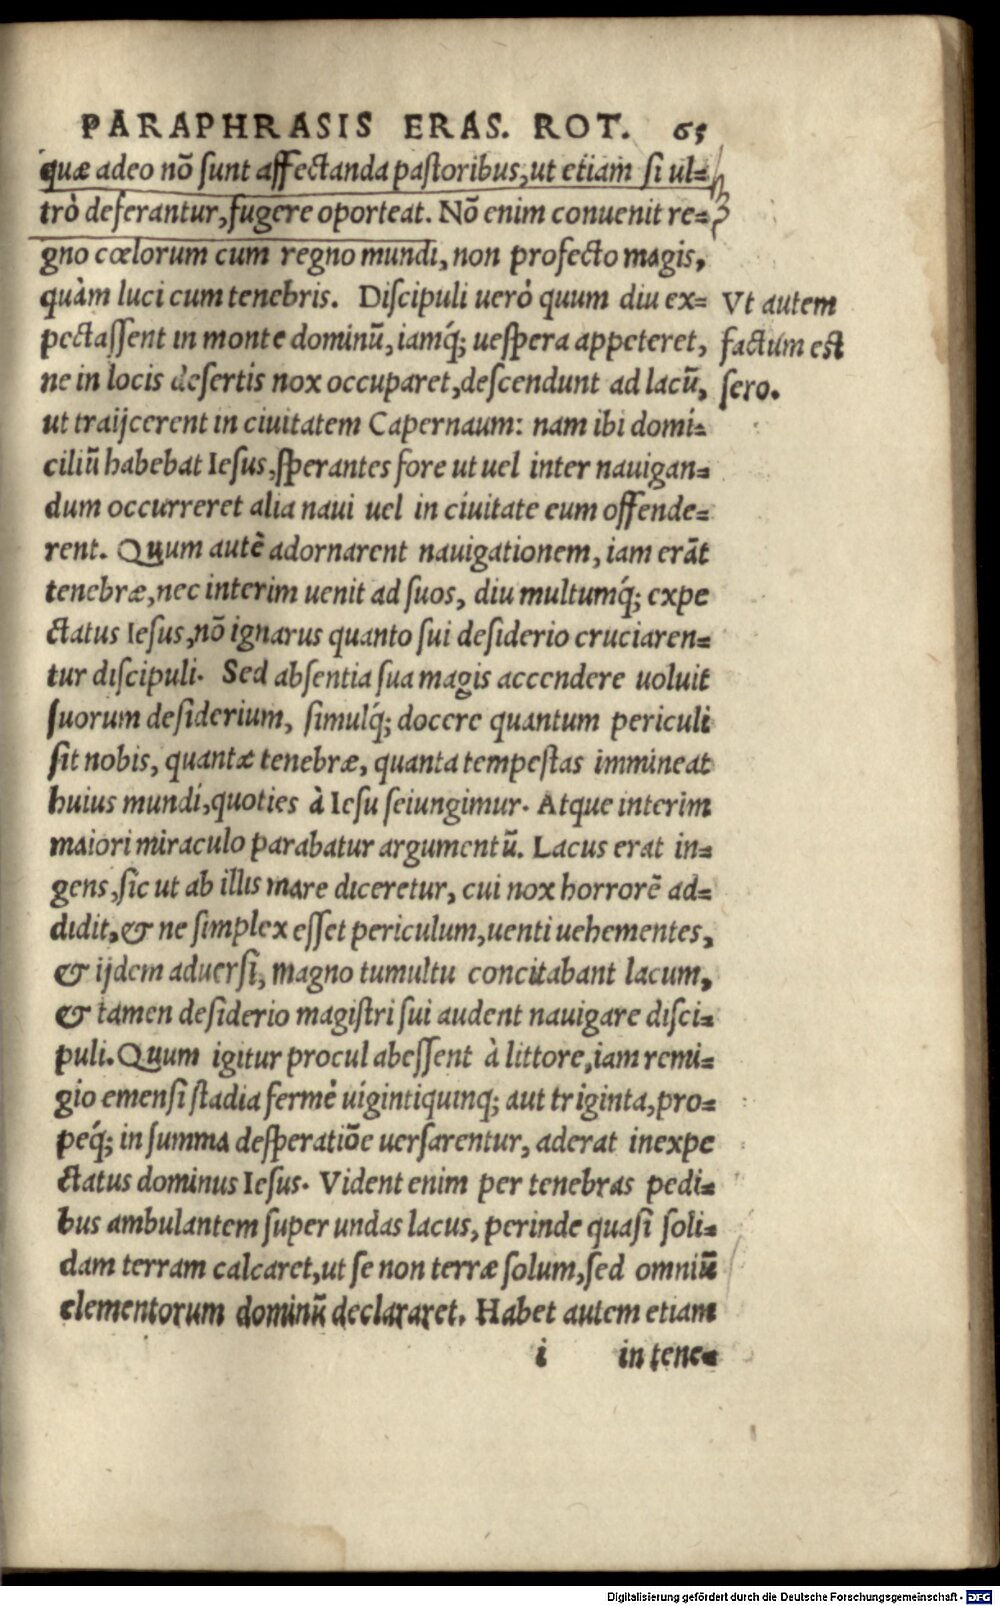 PARAPHRASIS ERAS. ROT. 65
quæ adeo nõ ſunt affectanda paſtoribus, ut etiam ſi ul=
trò deferantur, fugere oporteat. Nõ enim conuenit re=
gno cœlorum cum regno mundi, non profecto magis,
quàm luci cum tenebris. Diſcipuli uerò quum diu ex=
pectaſſent in monte dominũ, iamq́; ueſpera appeteret,
ne in locis deſertis nox occuparet, deſcendunt ad lacũ,
ut traijcerent in ciuitatem Capernaum: nam ibi domi=
ciliũ habebat Ieſus, ſperantes fore ut uel inter nauigan=
dum occurreret alia naui uel in ciuitate eum offende=
rent. Quum autẽ adornarent nauigationem, iam erãt
tenebræ, nec interim uenit ad ſuos, diu multumq́; expe
ctatus Ieſus, nõ ignarus quanto ſui deſiderio cruciaren=
tur diſcipuli. Sed abſentia ſua magis accendere uoluit
ſuorum deſiderium, ſimulq́; docere quantum periculi
ſit nobis, quantæ tenebræ, quanta tempeſtas immineat
huius mundi, quoties à Ieſu ſeiungimur. Atque interim
maiori miraculo parabatur argumentũ. Lacus erat in=
gens, ſic ut ab illis mare diceretur, cui nox horrorẽ ad=
didit, & ne ſimplex eſſet periculum, uenti uehementes,
& ijdem aduerſi, magno tumultu concitabant lacum,
& tamen deſiderio magiſtri ſui audent nauigare diſci=
puli. Quum igitur procul abeſſent à littore, iam remi=
gio emenſi ſtadia fermè uigintiquinq; aut triginta, pro=
peq́; in ſumma deſperatiõe uerſarentur, aderat inexpe
ctatus dominus Ieſus. Vident enim per tenebras pedi=
bus ambulantem ſuper undas lacus, perinde quaſi ſoli=
dam terram calcaret, ut ſe non terræ ſolum, ſed omniũ
elementorum dominũ declararet. Habet autem etiam
i in tene=
Vt autem
factum est
ſero.
Digitalisierung gefördert durch die Deutsche Forschungsgemeinschaft - DFG